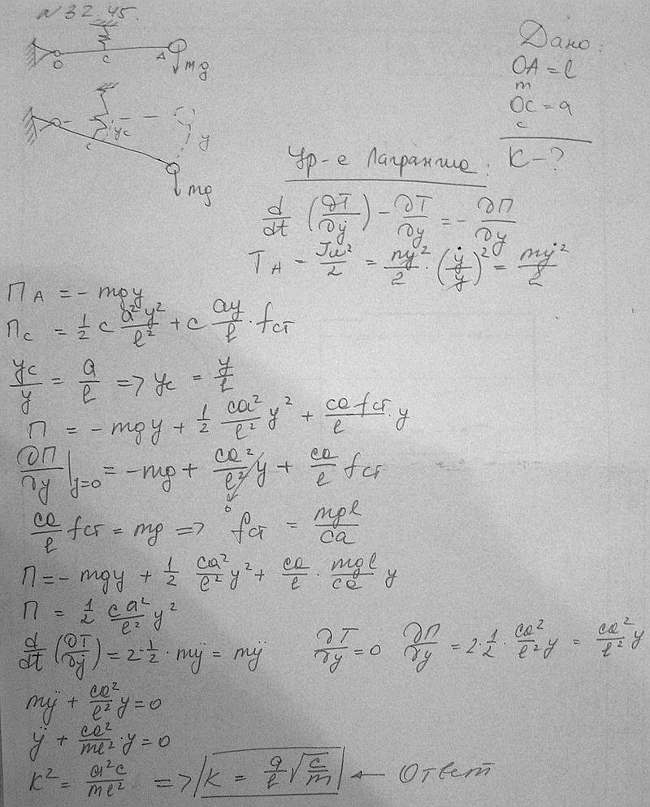 № 32.45.
O C A mg
Дано:
OA = l
m
OC = a
c
K - ?
yc y
c
mg
Ур-е Лагранжа:
d/dt (∂T/∂ẏ) - ∂T/∂y = - ∂П/∂y
T_A = Jω²/2 = my²/2 · (ẏ/y)² = mẏ²/2
П_A = - mgy
П_C = 1/2 c a²y²/l² + c ay/l · fст
yc/y = a/l => yc = y/l
П = - mgy + 1/2 ca²/l² y² + ca fст/l · y
∂П/∂y |y=0 = - mg + ca²/l² y + ca/l fст
0
ca/l fст = mg => fст = mgl/ca
П = - mgy + 1/2 ca²/l² y² + ca/l · mgl/ca y
П = 1/2 ca²/l² y²
d/dt (∂T/∂ẏ) = 2·1/2 · mÿ = mÿ ∂T/∂y = 0 ∂П/∂y = 2·1/2 · ca²/l² y = ca²/l² y
mÿ + ca²/l² y = 0
ÿ + ca²/ml² · y = 0
K² = a²c/ml² => K = a/l √c/m ← Ответ